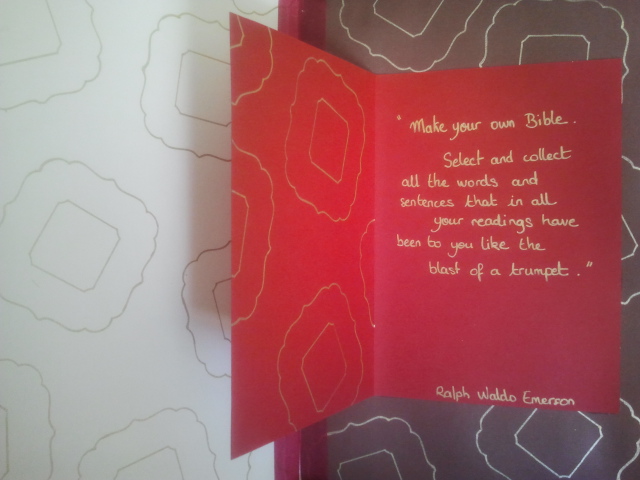 "Make your own Bible.
Select and collect
all the words and
sentences that in all
your readings have
been to you like the
blast of a trumpet."
Ralph Waldo Emerson